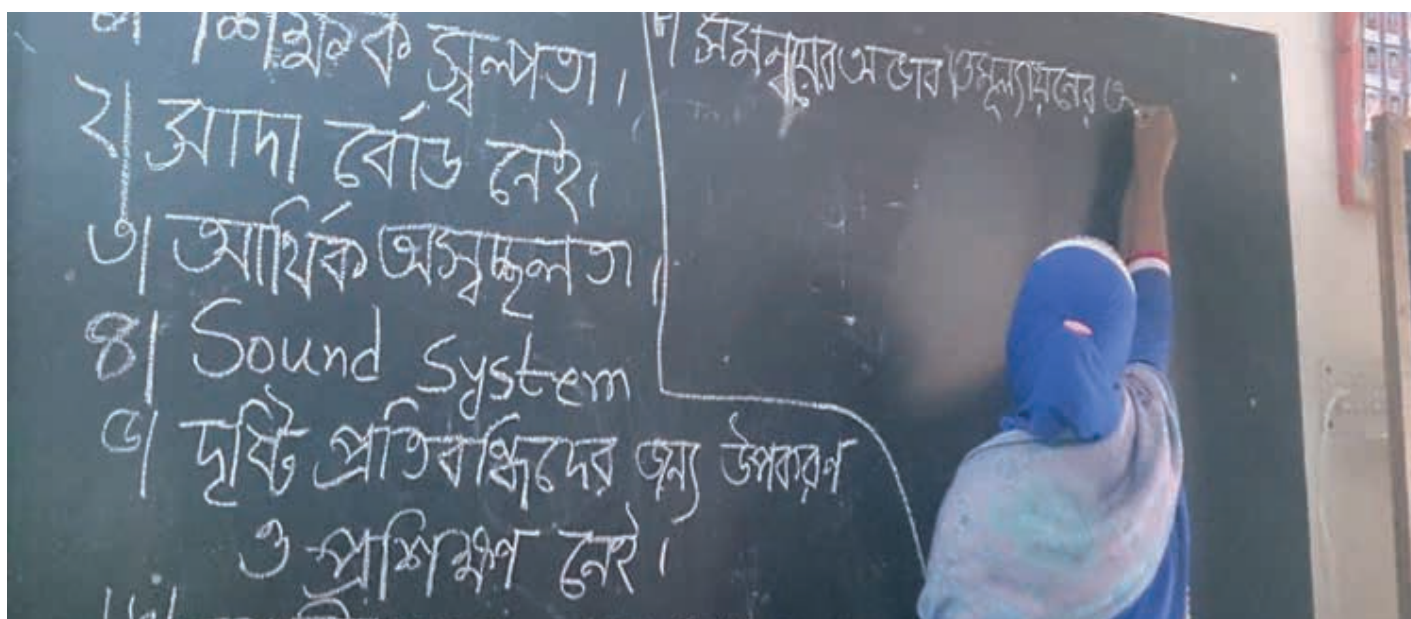 ১। শিক্ষক স্বল্পতা।
২। সাদা বোর্ড নেই।
৩। আর্থিক অস্বচ্ছলতা।
৪। Sound System
৫। দৃষ্টি প্রতিবন্ধিদের জন্য উপকরণ
ও প্রশিক্ষণ নেই।
সমন্বয়ের অভাব ও মূল্যায়নের